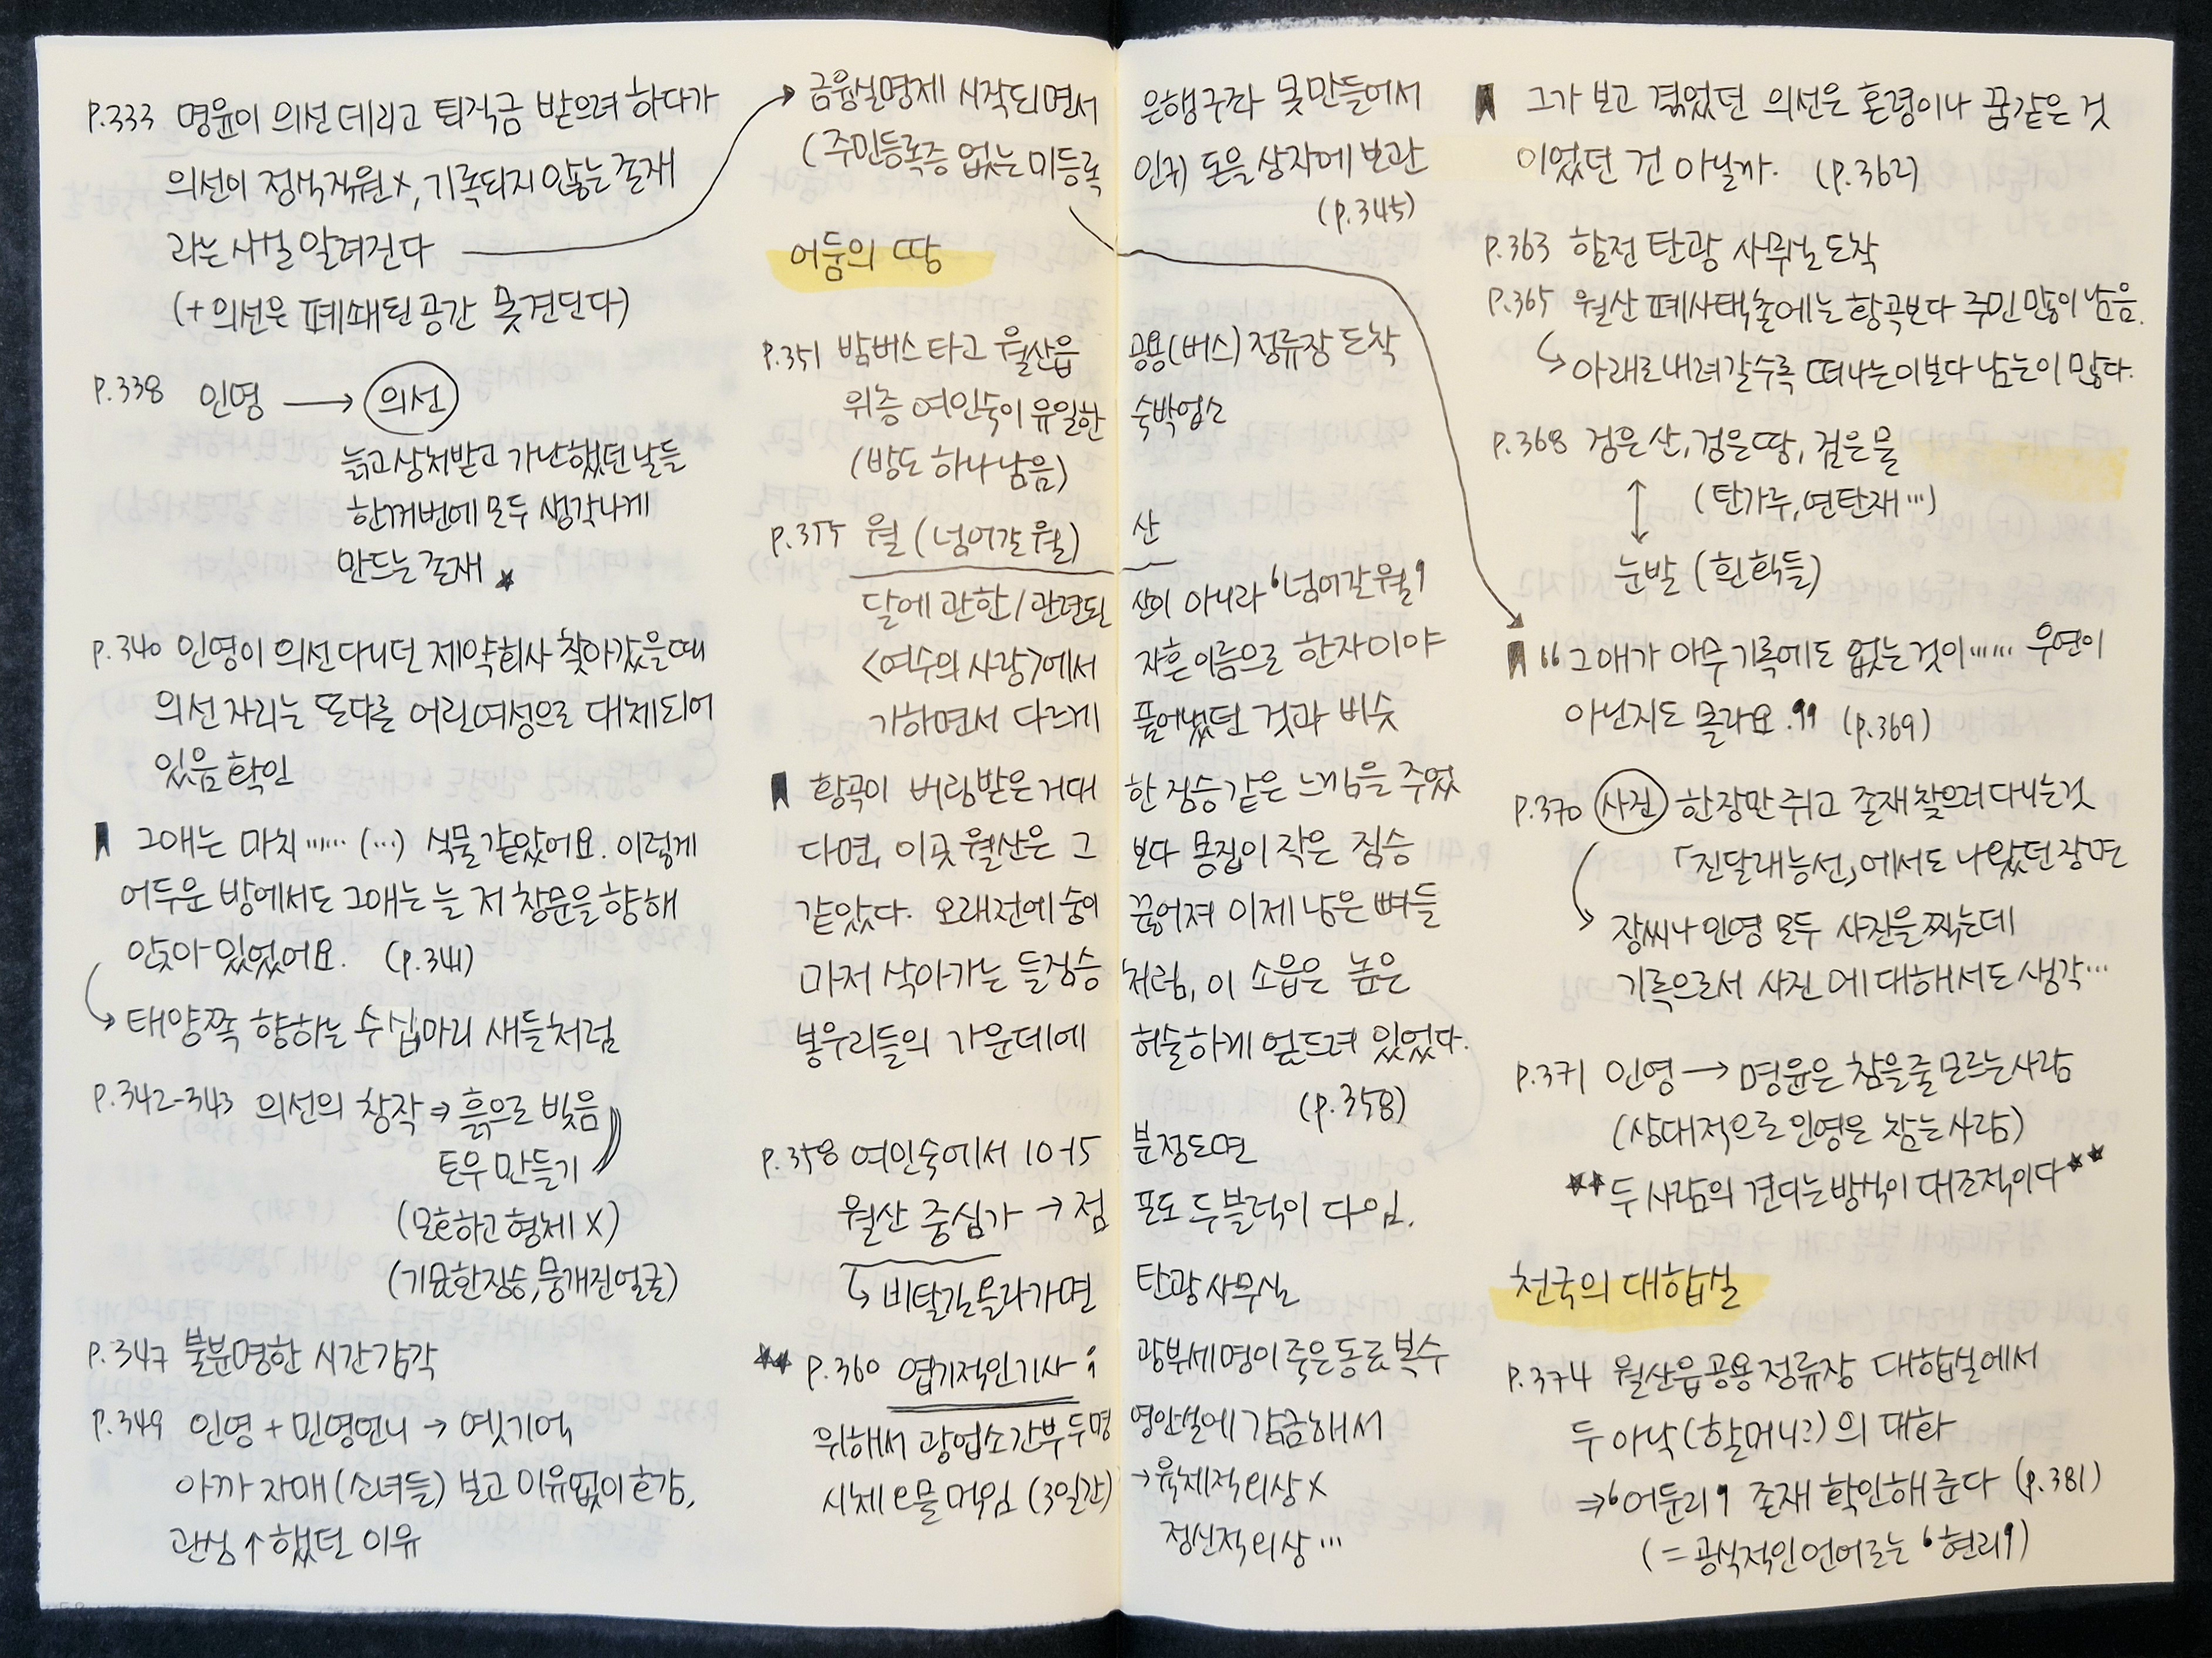 P.333 명윤이 의선 데리고 퇴직금 받으려 하다가
의선이 정식직원X, 기록되지 않는 존재
라는 사실 알려진다
(+의선은 폐쇄된 공간 못견딘다)
P.338 인영 → 의선
늙고 상처받고 가난했던 날들
한꺼번에 모두 생각나게
만드는 존재 ★
P.340 인영이 의선 다니던 제약회사 찾아갔을때
의선 자리는 또다른 어린 여성으로 대체되어
있음 확인
그애는 마치…… (…) 식물 같았어요. 이렇게
어두운 방에서도 그애는 늘 저 창문을 향해
앉아 있었어요. (p.341)
→ 태양쪽 향하는 수십마리 새들처럼
P.342-343 의선의 창작 ⇒ 흙으로 빚음
토우 만들기
(모호하고 형체 X)
(기묘한 짐승, 뭉개진 얼굴)
P.347 불분명한 시간감각
P.349 인영 + 민영언니 → 옛기억
아까 자매(소녀들) 보고 이유없이 호감,
관심↑했던 이유
금융실명제 시작되면서 은행구좌 못만들어서
(주민등록증 없는 미등록인귀 돈을 상자에 보관
(p.345)
어둠의 땅
P.351 밤버스 타고 월산읍 공용(버스) 정류장 도착
위층 여인숙이 유일한 숙박업소
(방도 하나 남음)
P.355 월(넘어갈 월) 산
달에 관한/관련된 산이 아니라 '넘어갈 월'
<여수의 사랑>에서 자흔 이름으로 한자이야
기하면서 다르게 풀어냈던 것과 비슷
황곡이 버림받은 거대한 짐승같은 느낌을 주었
다면, 이곳 월산은 그보다 몸집이 작은 짐승
같았다. 오래전에 숨이 끊어져 이제 남은 뼈들
마저 삭아가는 들짐승처럼, 이 소읍은 높은
봉우리들의 가운데에 허술하게 엎드려 있었다.
(p.358)
P.358 여인숙에서 10-15분정도면
월산 중심가 → 점포도 두블럭이 다임.
↳ 비탈길 올라가면 탄광사무실
★★ P.360 엽기적인기사 : 광부 세명이 죽은 동료 복수
위해서 광업소 간부 두명 영안실에 감금해서
시체 e물 먹임 (3일간) → 육체적 e상 X
정신적 e상 …
그가 보고 겪었던 의선은 혼령이나 꿈같은 것
이었던 건 아닐까. (p.362)
P.363 함전 탄광 사무실 도착
P.365 월산 폐사택촌에는 황곡보다 주민 많이 남음.
↳ 아래로 내려갈수록 떠나는이보다 남는이 많다.
P.368 검은 산, 검은 땅, 검은 물
↕ (탄가루, 연탄재…)
눈발 (흰 학들)
“그애가 아무 기록에도 없는 것이…… 우연이
아닌지도 몰라요.” (p.369)
P.370 사진 한장만 쥐고 존재 찾으러 다니는것
「진달래능선」에서도 나왔던 장면
→ 장씨나 인영 모두 사진을 찍는데
기록으로서 사진에 대해서도 생각…
P.371 인영 → 명윤은 참을 줄 모르는 사람
(상대적으로 인영은 참는 사람)
★★ 두 사람의 견디는 방식이 대조적이다 ★★
천국의 대합실
P.374 월산읍 공용 정류장 대합실에서
두 아낙(할머니?)의 대화
⇒ '어둔리' 존재 확인해 준다 (p.381)
(= 공식적인 언어로는 '현리')